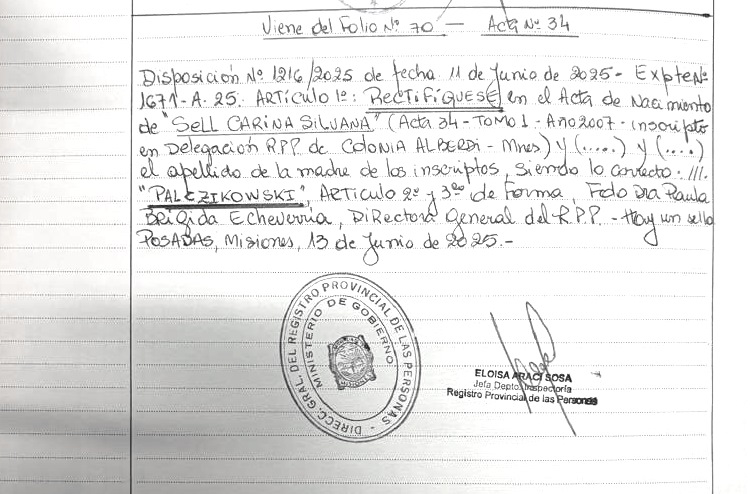 Viene del Folio Nº 70 — Acta Nº 34
Disposición Nº 1216/2025 de fecha 11 de Junio de 2025- Expte Nº
1671-A-25. ARTÍCULO 1º: RECTIFÍQUESE en el Acta de Nacimiento
de "SELL CARINA SILVANA" (Acta 34-TOMO 1-Año 2007-inscripto
en Delegación RPP de COLONIA ALBERDI - Mnes) y (.....) y (....)
el apellido de la madre de los inscriptos, siendo lo correcto: ///.
"PALCZIKOWSKI", ARTÍCULO 2º y 3º de forma, Fdo Dra Paula
BRIGIDA Echeverria, DIRectora General del R.P.P. - Hay un sello
POSADAS, Misiones, 13 de Junio de 2025.-
DIRECC. GRAL. DEL REGISTRO PROVINCIAL DE LAS PERSONAS
MINISTERIO DE GOBIERNO
ELOISA ARACI SOSA
Jefa Depto. Inspectoría
Registro Provincial de las Personas